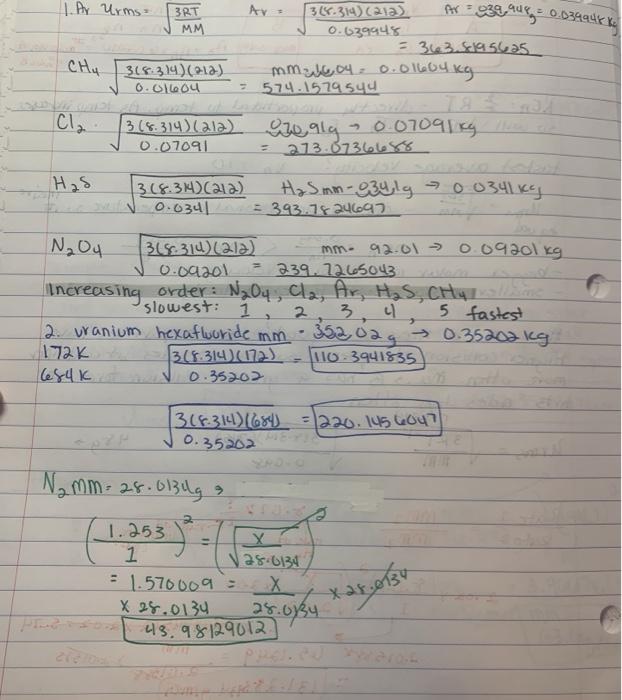 1. Ar Urms = √3RT/MM Ar = √3(8.314)(212)/0.039948 Ar = 039.948g = 0.039948 kg
= 363.8195625
CH4 √3(8.314)(212)/0.01604 = 574.1579544 mm = 16.04 = 0.01604 kg
Cl2 √3(8.314)(212)/0.07091 = 273.0736688 070.91g → 0.07091 kg
H2S √3(8.314)(212)/0.0341 = 393.7824697 H2S mm - 034.1g → 0.0341 kg
N2O4 √3(8.314)(212)/0.09201 = 239.7265043 mm = 92.01 → 0.09201 kg
Increasing order: N2O4, Cl2, Ar, H2S, CH4
slowest: 1, 2, 3, 4, 5 fastest
2. uranium hexafluoride mm - 352.02g → 0.35202 kg
172K √3(8.314)(172)/0.35202 = 110.3941835
684K
√3(8.314)(684)/0.35202 = 220.1456047
N2 mm = 28.0134g
(1.253/1)² = (√x/28.0134)²
= 1.570009 = x/28.0134 x 28.0134
x 28.0134
43.98129012